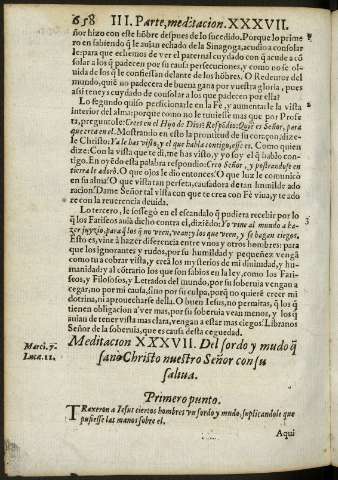 658 III. Parte, meditacion. XXXVII.
ñor hizo con este hõbre despues de lo sucedido. Porque lo prime
ro en sabiendo q̃ le auian echado de la Sinagoga, acudio a consolar
le: para que echemos de ver el paternal cuydado con q̃ acude a cõ
solar a los q̃ padecen por su causa persecuciones, y como no se ol-
uida de los q̃ le confiessan delante de los hõbres. O Redentor del
mundo, quiẽ no padecera de buena gana por vuestra gloria, pues
assi teneys cuydado de consolar a los que padecen por ella?
Lo segundo quiso perficionarle en la Fè, y aumentarle la vista
interior del alma: porque como no le tuuiesse mas que por Profe
ta, preguntole: Crees en el Hijo de Dios? Respõdio: Quiẽ es Señor, para
que crea en el. Mostrando en esto la prontitud de su coraçon, dize-
le Christo: Ya le has visto, y el que habla contigo, esse es. Como quien
dize: Con la vista que te di, me has visto, y yo soy el q̃ hablo con-
tigo. En oyẽdo esta palabra respondio: Creo Señor, y postrandose en
tierra le adorò. O que ojos le dio entonces! O que luz le comunicò
en su alma! O que vista tan perfeta, causadora de tan humilde ado
racion! Dame Señor tal vista con que te crea con Fè viua, y te ado
re con la reuerencia deuida.
Lo tercero, le sossegò en el escandalo q̃ pudiera recebir por lo
q̃ los Fariseos auia dicho contra el, diziẽdo: Yo vine al mundo a ha-
zer juyzio, para q̃ los q̃ no veen, vean; y los que veen, y se hagan ciegos,
Esto es, vine à hazer diferencia entre vnos y otros hombres: para
que los ignorantes y rudos, por su humildad y pequeñez vengã
como tu a cobrar vista, y creã los mysterios de mi diuinidad, y hu-
manidad: y al cõtrario los que son sabios en la ley, como los Fari-
seos, y Filosofos, y Letrados del mundo, por su soberuia vengan a
cegar, no por mi causa, sino por su culpa, porq̃ no quierẽ creer mi
dotrina, ni aprouecharse della. O buen Iesus, no permitas, q̃ los q̃
tienen obligacion a ver mas, por su soberuia vean menos, y los q̃
auian de tener vista mas clara, vengan a estar mas ciegos. Libranos
Señor de la soberuia, que es causa desta ceguedad.
Meditacion XXXVII. Del sordo y mudo q̃
Marci. 7.
Lucæ. 11.
sanò Christo nuestro Señor con su
saliua.
Primero punto.
TRaxeron a Iesus ciertos hombres vn sordo y mudo, suplicandole que
pusiesse las manos sobre el.
Aqui